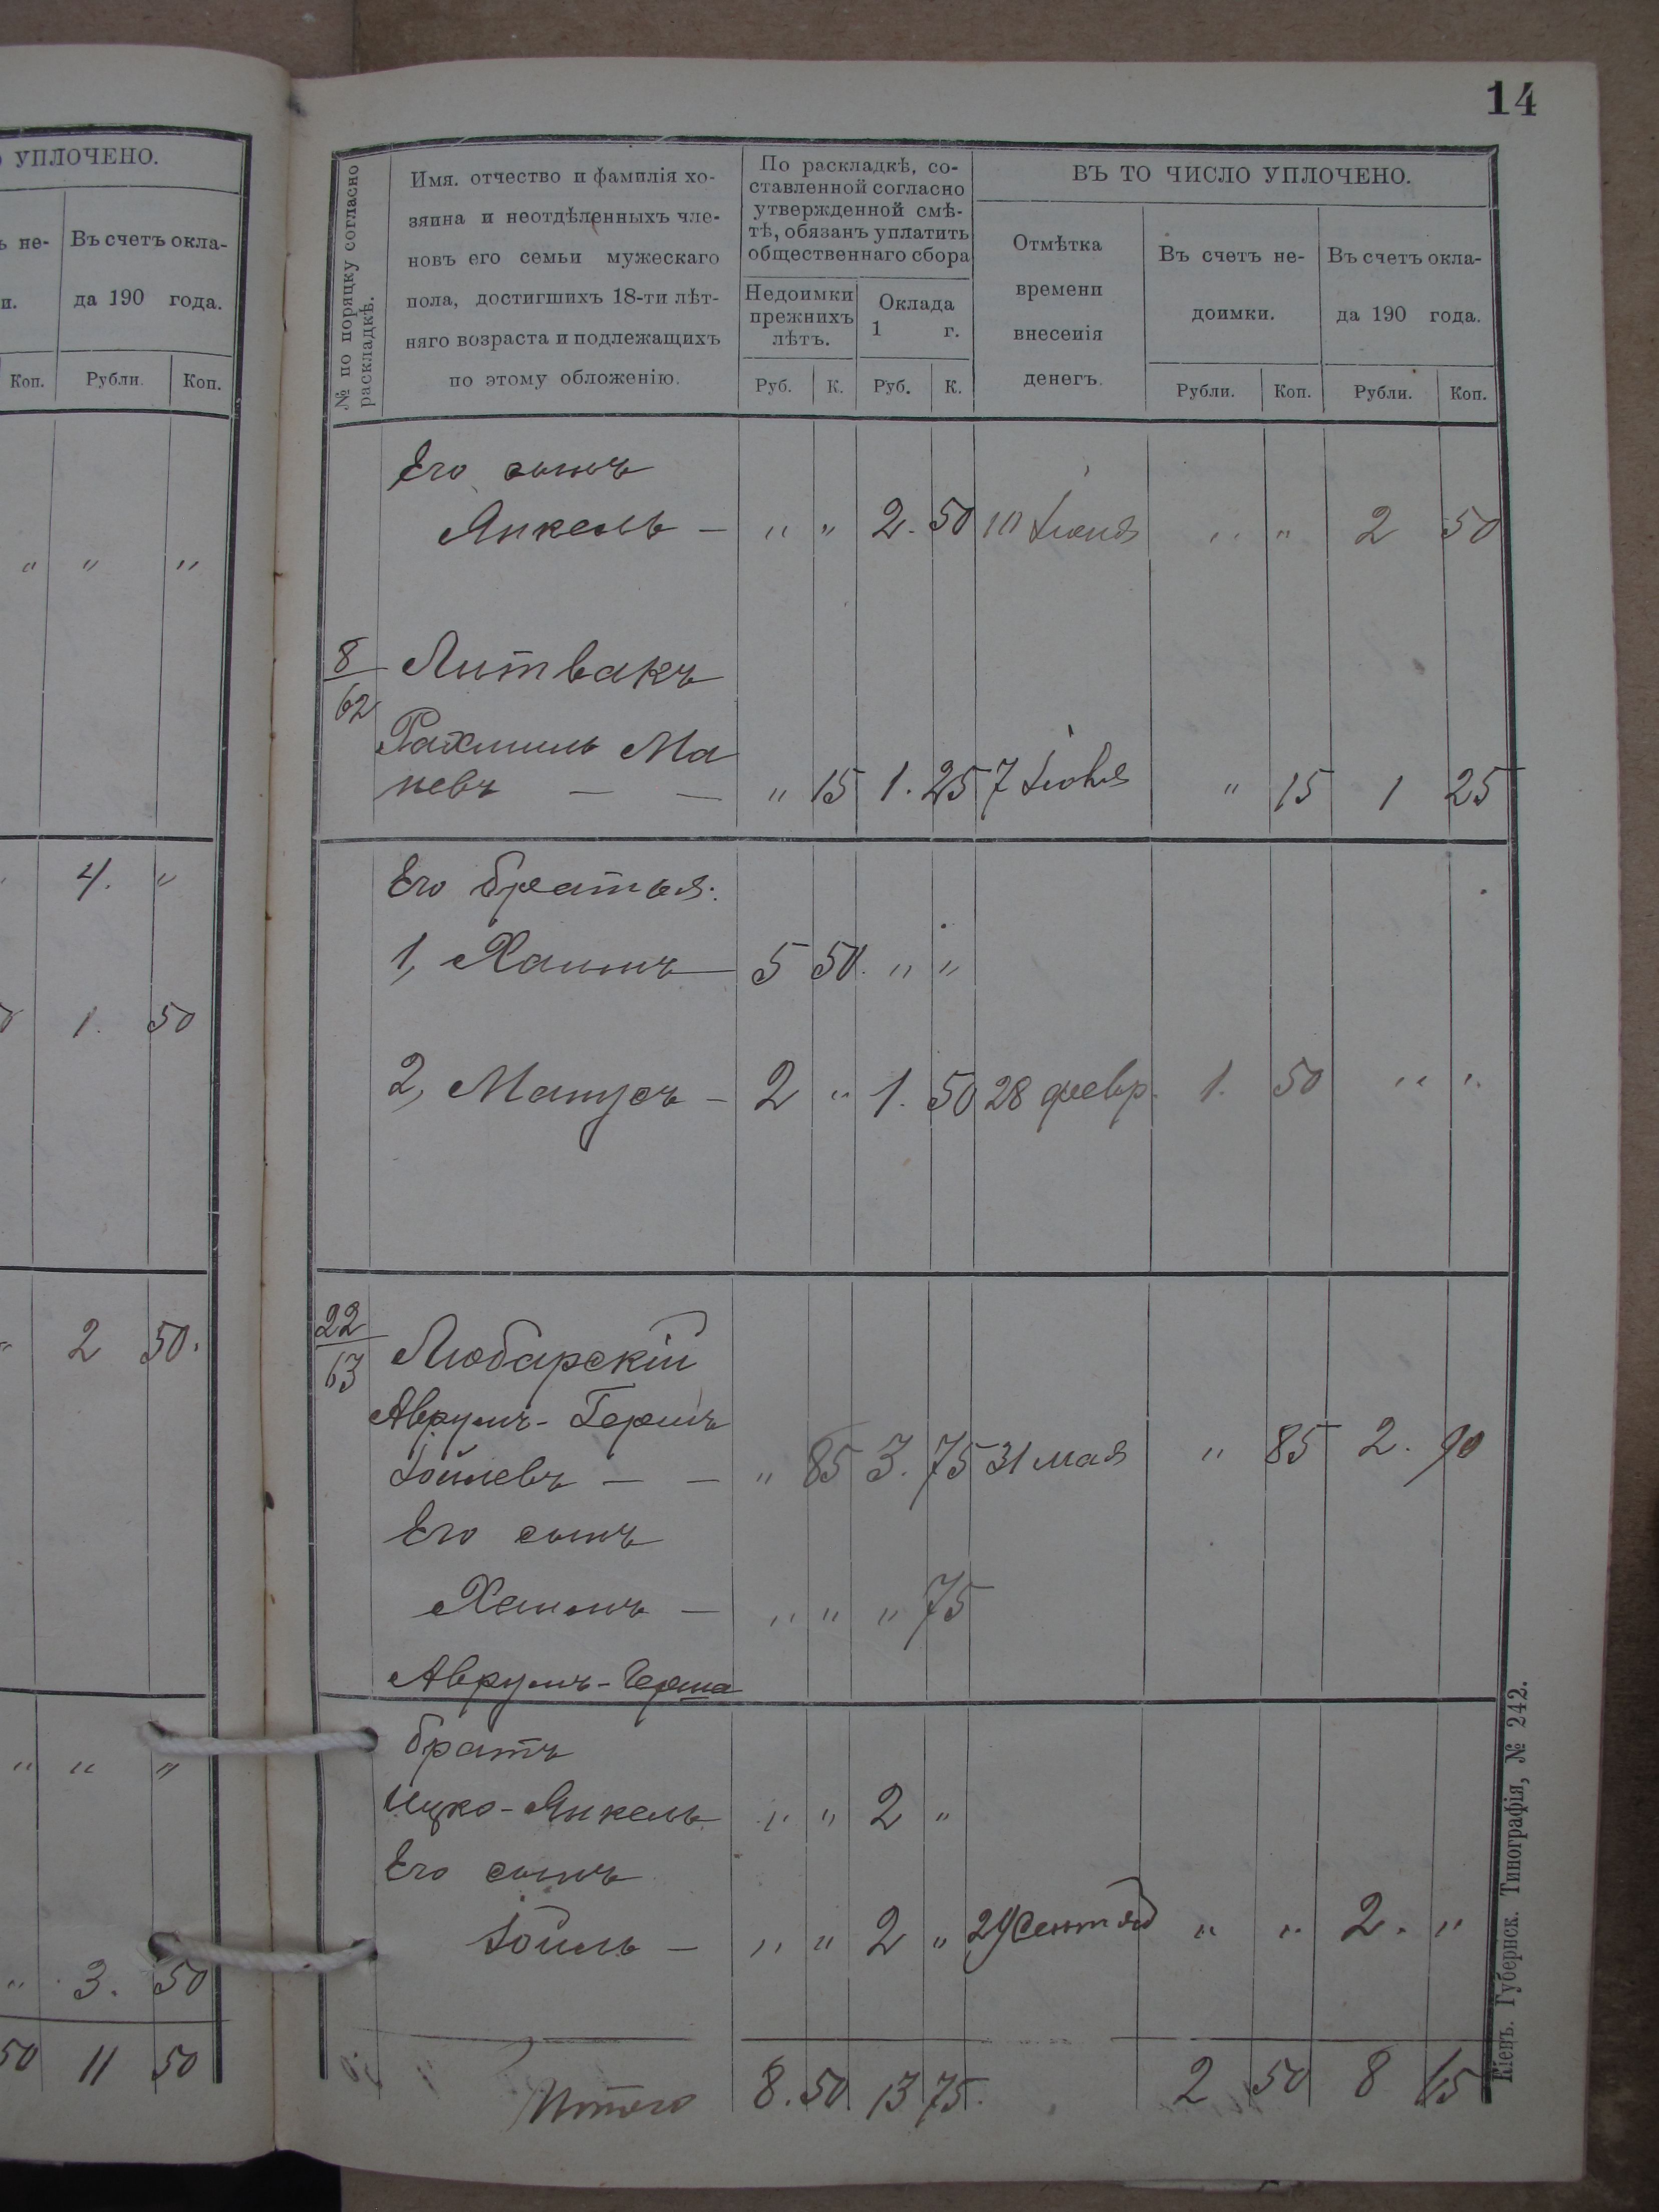 14
УПЛОЧЕНО.
Въ счетъ окла-
да 190 года.
Коп. Рубли. Коп.
" " "
4. "
1. 50
2 50.
" " "
" 3. 50
50 11 50
№ по поряцку согласно
раскладкѣ.
Имя. отчество и фамилія хо-
зяина и неотдѣленныхъ чле-
новъ его семьи мужескаго
пола, достигшихъ 18-ти лѣт-
няго возраста и подлежащихъ
по этому обложенію.
По раскладкѣ, со-
ставленной согласно
утвержденной смѣ-
тѣ, обязанъ уплатить
общественнаго сбора
Недоимки
прежнихъ
лѣтъ.
Оклада
1 г.
Руб. К. Руб. К.
ВЪ ТО ЧИСЛО УПЛОЧЕНО.
Отмѣтка
времени
внесенія
денегъ.
Въ счетъ не-
доимки.
Въ счетъ окла-
да 190 года.
Рубли. Коп. Рубли. Коп.
Его сынъ
Янкель — " " 2. 50 10 Іюня " " 2 50
8/62 Литвакъ
Рахмиль Ма
невъ — — " 15 1. 25 7 " 15 1 25
Его братья:
1, Хаимъ — 5 50. " "
2, Манусъ — 2 " 1. 50 28 февр. 1. 50 " "
22/63 Любарскій
Аврумъ-Гершъ
Іойлевъ — — " 85 3. 75 31 мая " 85 2. 90
Его сынъ
Хаимъ — " " " 75
Аврумъ-Герша
братъ
Ицко-Янкель " " 2 "
Его сынъ
Іойль — " " 2 " 29 Сентяб " " 2. "
Итого 8. 50. 13 75. 2 50 8 15
Кіевъ. Губернск. Типографія, № 242.